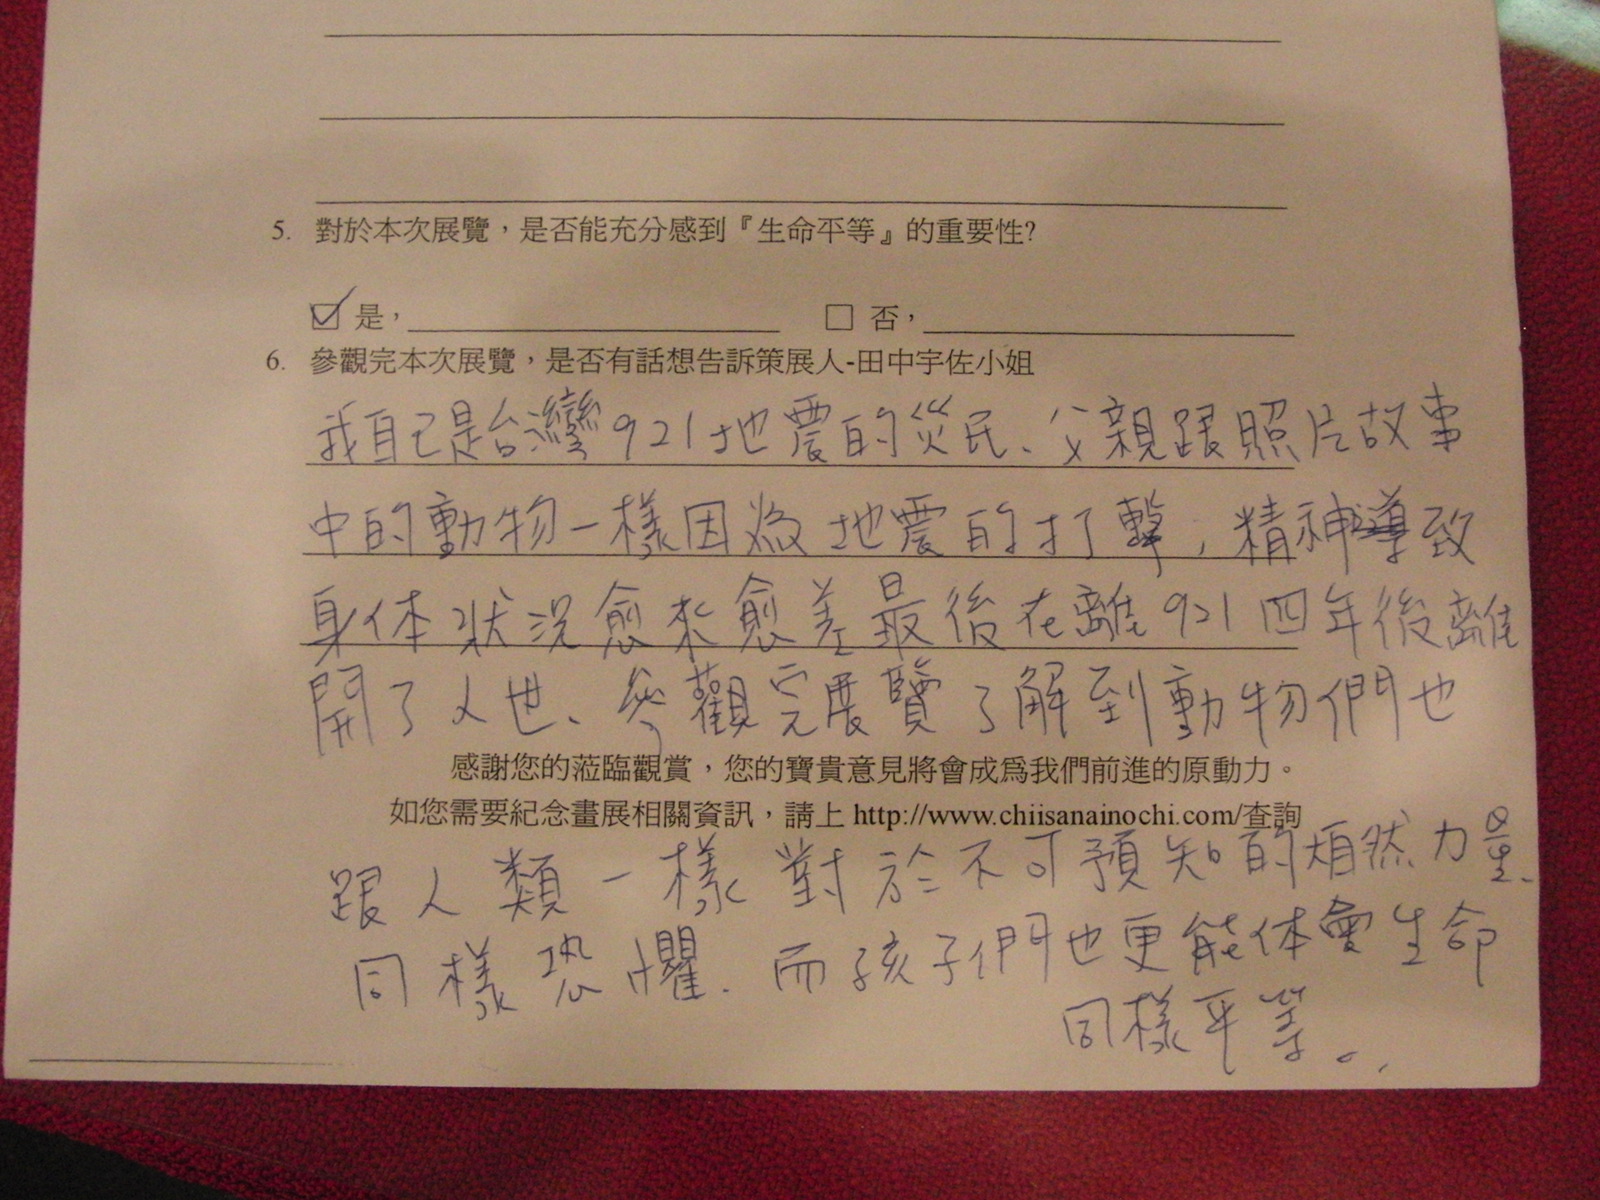 5. 對於本次展覽，是否能充分感到『生命平等』的重要性?
☑ 是， □ 否，
6. 參觀完本次展覽，是否有話想告訴策展人-田中宇佐小姐
我自己是台灣921地震的災民、父親跟照片故事
中的動物一樣因為地震的打擊，精神導致
身体狀況愈來愈差最後在離921四年後離
開了人世、參觀完展覽了解到動物們也
感謝您的蒞臨觀賞，您的寶貴意見將會成為我們前進的原動力。
如您需要紀念畫展相關資訊，請上 http://www.chiisanainochi.com/查詢
跟人類一樣對於不可預知的然力量、
同樣恐懼、而孩子們也更能体會生命
同樣平等。